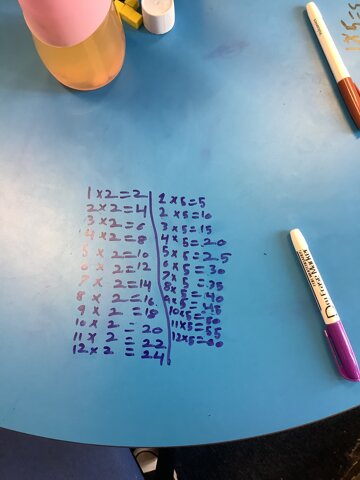 1 x 2 = 2
2 x 2 = 4
3 x 2 = 6
4 x 2 = 8
5 x 2 = 10
6 x 2 = 12
7 x 2 = 14
8 x 2 = 16
9 x 2 = 18
10 x 2 = 20
11 x 2 = 22
12 x 2 = 24
1 x 5 = 5
2 x 5 = 10
3 x 5 = 15
4 x 5 = 20
5 x 5 = 25
6 x 5 = 30
7 x 5 = 35
8 x 5 = 40
9 x 5 = 45
10 x 5 = 50
11 x 5 = 55
12 x 5 = 60